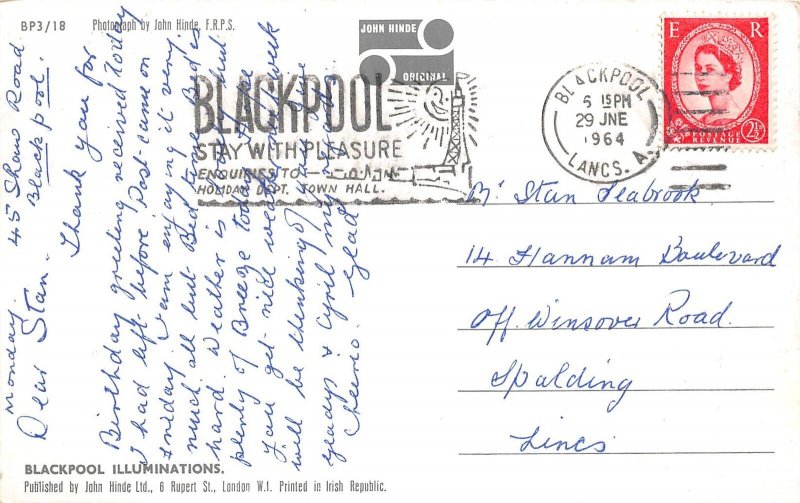 BP3/18 Photograph by John Hinde, F.R.P.S.
JOHN HINDE
ORIGINAL
BLACKPOOL
STAY WITH PLEASURE
ENQUIRIES TO
HOLIDAY DEPT. TOWN HALL.
BLACKPOOL
6 15 PM
29 JNE
1964
LANCS. A.
E R
POSTAGE 2½D
REVENUE
45 Shaw Road
Blackpool.
Monday.
Dear Stan. Thank you for
Birthday greeting received today
I had left before Post came on
Friday. I am enjoying it very
much all but Bed time Bed is
hard. Weather is but
plenty of Breeze today
You get nice weather week
will be thinking of
Gladys & Cyril my
Cheerio. Glad
Mr Stan Seabrook
14 Hannam Boulevard
Off Winsover Road.
Spalding
Lincs
BLACKPOOL ILLUMINATIONS.
Published by John Hinde Ltd., 6 Rupert St., London W.1. Printed in Irish Republic.